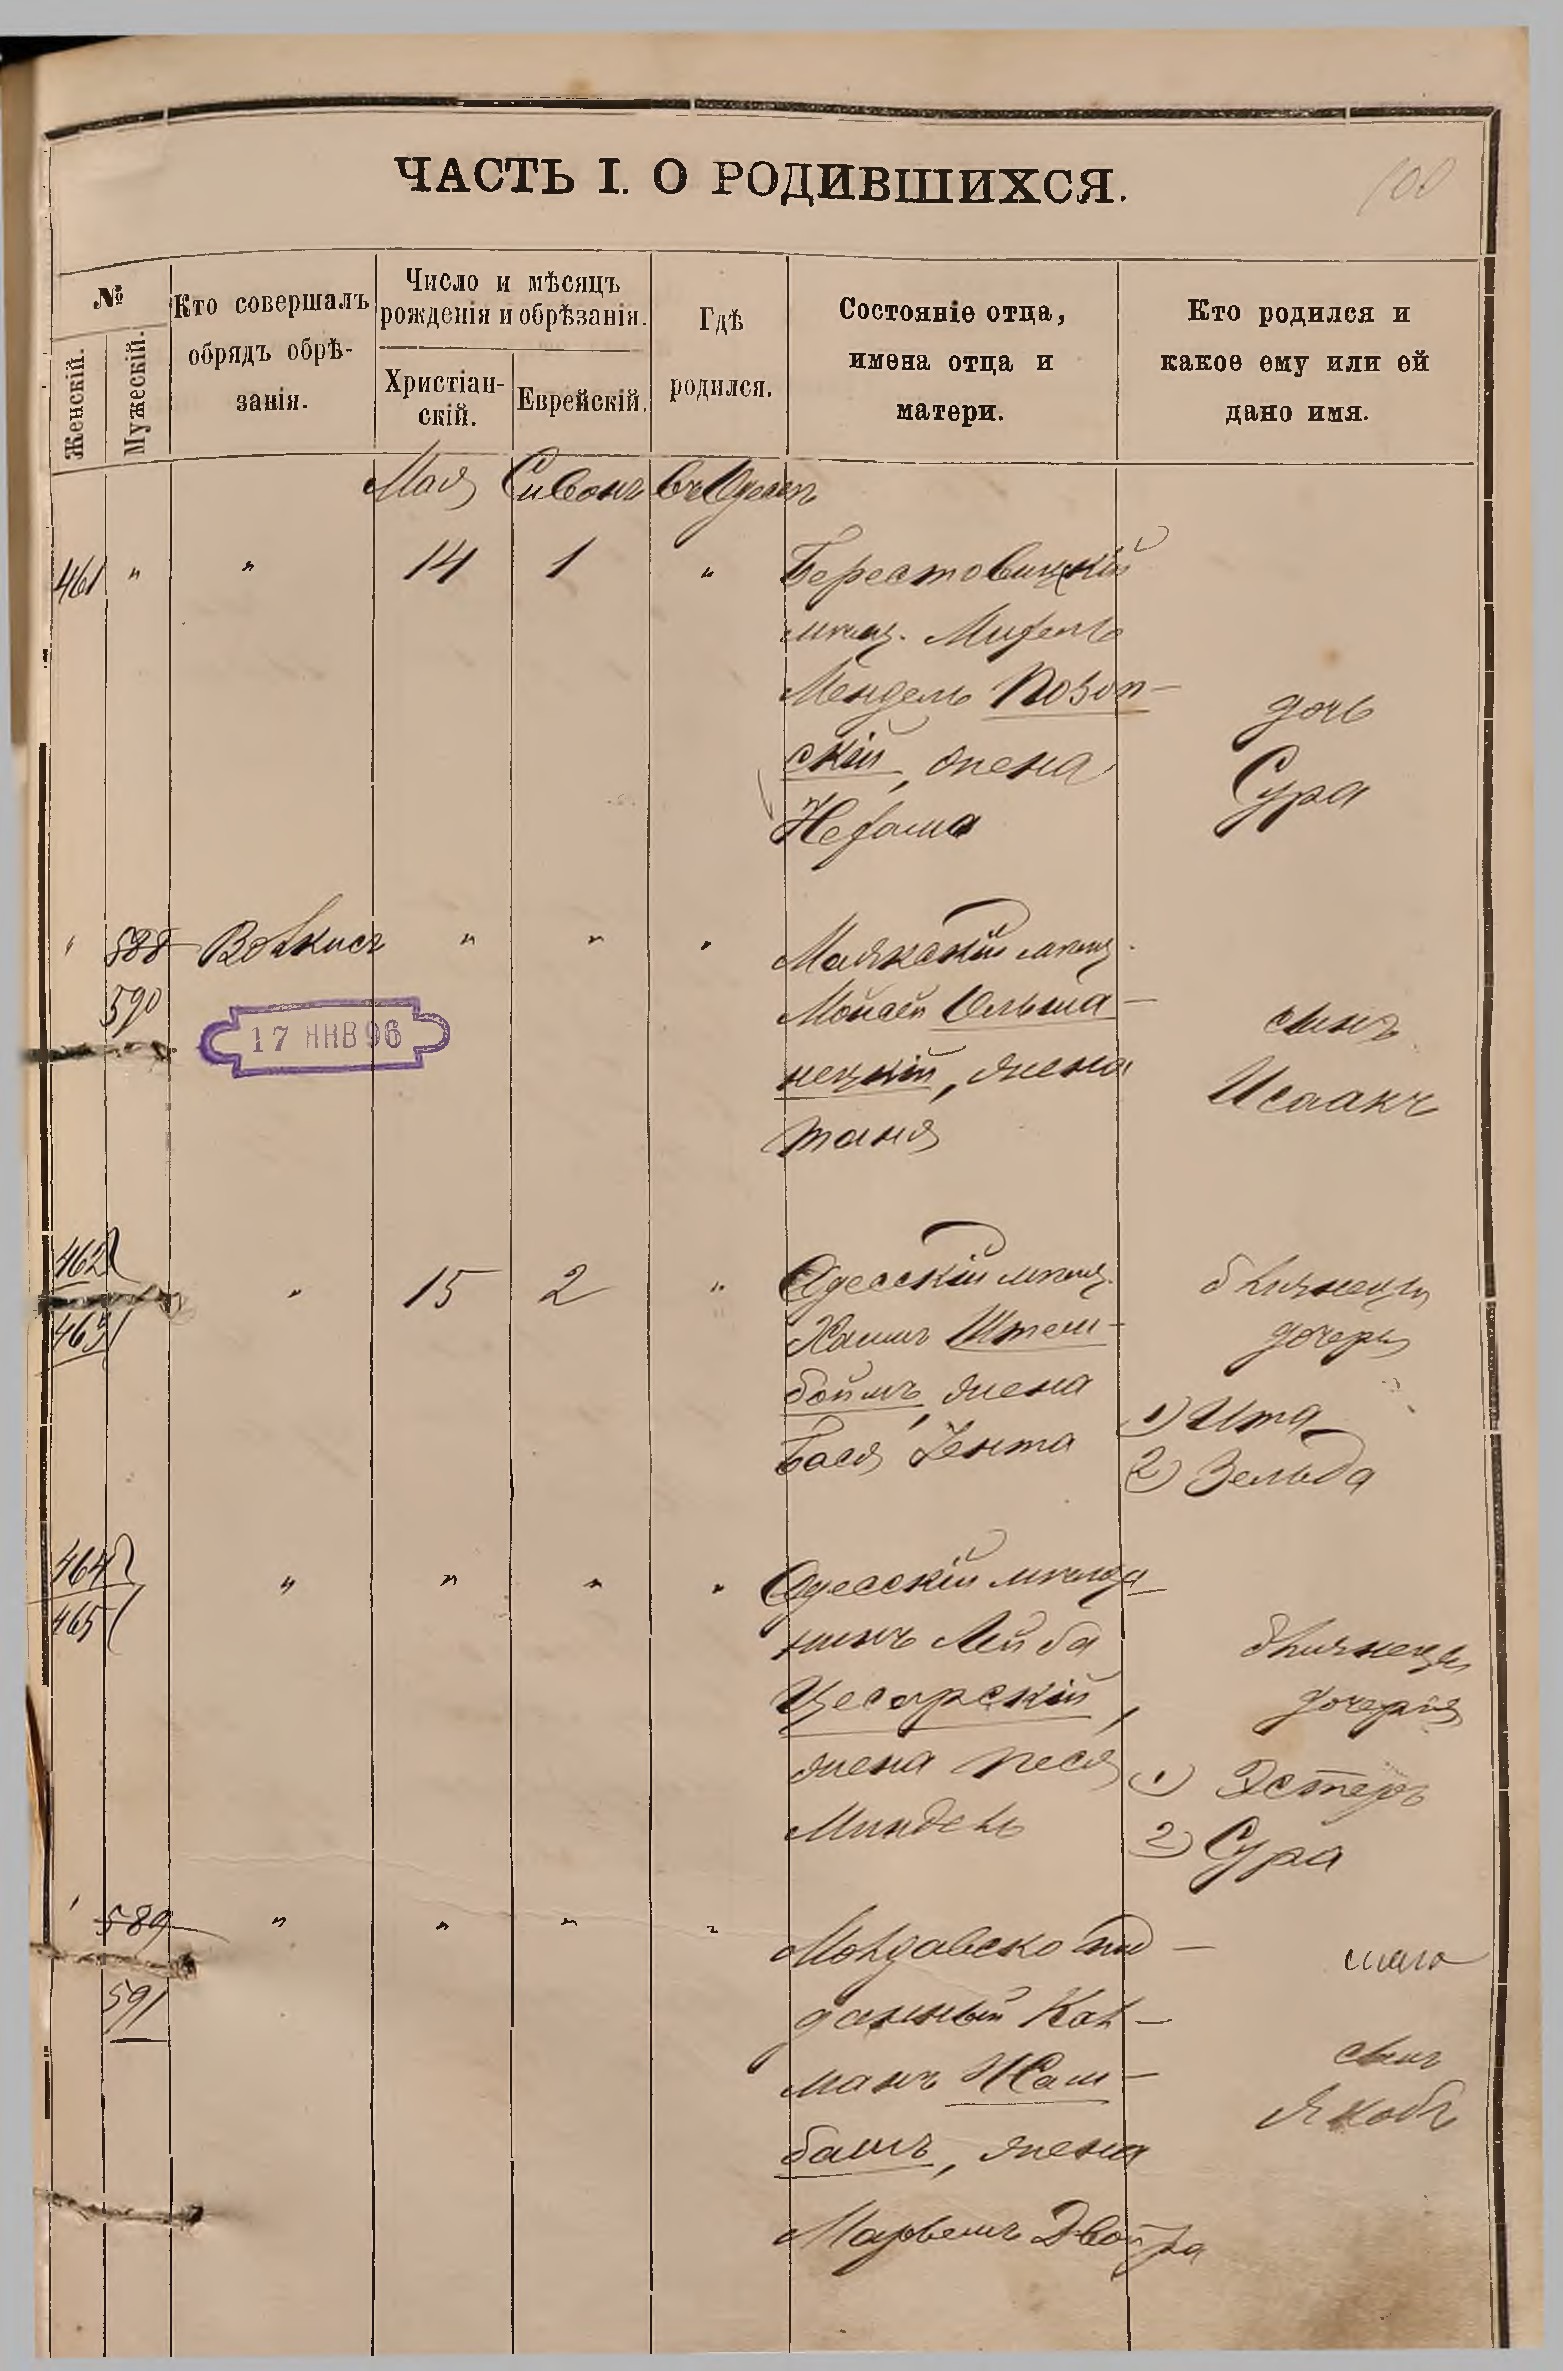 100
ЧАСТЬ I. О РОДИВШИХСЯ.
№
Женскій.
Мужескій.
Кто совершалъ
обрядъ обрѣ-
занія.
Число и мѣсяцъ
рожденія и обрѣзанія.
Христіан-
скій.
Еврейскій.
Гдѣ
родился.
Состояніе отца,
имена отца и
матери.
Кто родился и
какое ему или ей
дано имя.
Мая Сивонъ въ Одессѣ
461 " " 14 1 " Берестовицкій
мѣщ. Михель
Мендель Позон-
скій, жена
Нехама
дочь
Сура
" 588 Волкисъ " " " Маякскій мѣщ.
590
17 ЯНВ 96
Мойсей Ольша-
нецкій, жена
Таня
сынъ
Исаакъ
462 " 15 2 " Одесскій мѣщ.
463
Хаимъ
боймъ, жена
Бася Ента
близнецы
дочери
1) Ита
2) Зельда
464 " " " " Одесскій мѣща
465
нинъ Лейба
Цесарскій,
жена Песя
Миндель
близнецы
дочери
1) Эстеръ
2) Сура
" 589 " " " " Молдавско под-
591
данный Кал-
манъ
баумъ, жена
Двойра
сынъ
Якобъ